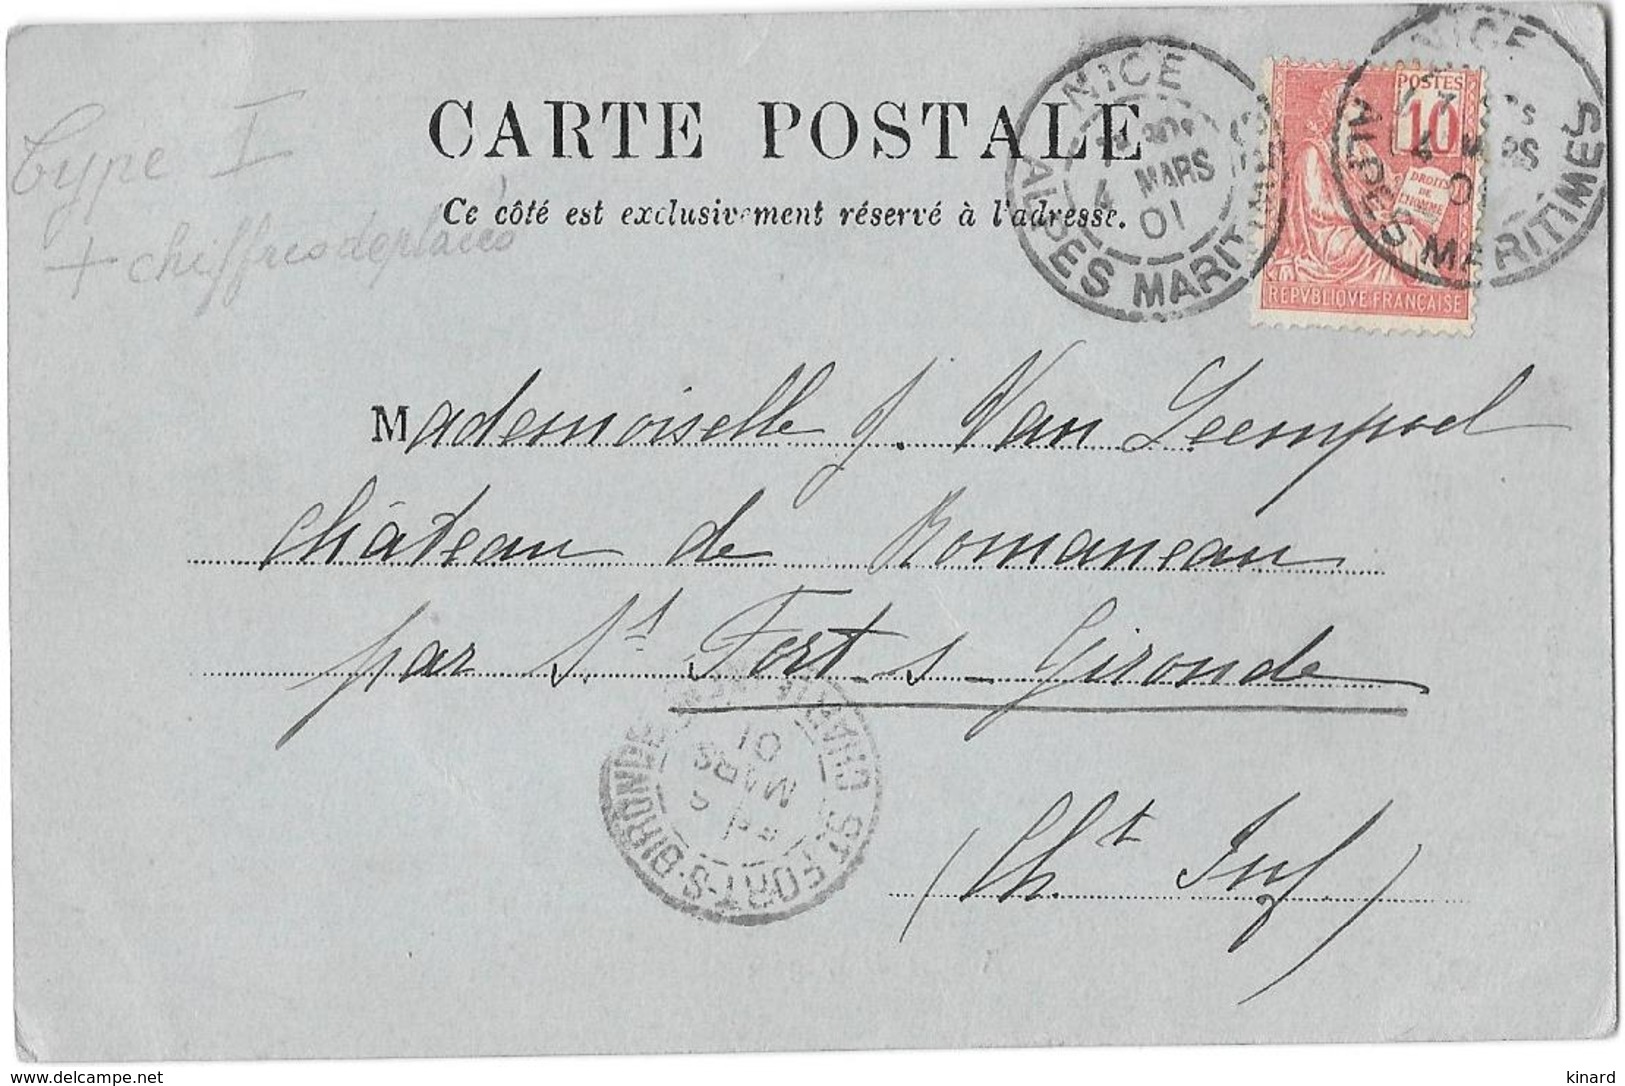 CARTE POSTALE
Ce côté est exclusivement réservé à l'adresse.
type I
+ chiffres déplacés
NICE
4 MARS
01
ALPES MARITIMES
POSTES
10
DROITS
DE
L'HOMME
REPVBLIQVE FRANÇAISE
NICE
4 MARS
ALPES MARITIMES
Mademoiselle J. Van Leempoel
château de Romaneau
par St Fort s Gironde
(Cht Inf)
MARS
01
ST FORT-S-GIRONDE
www.delcampe.net
kinard